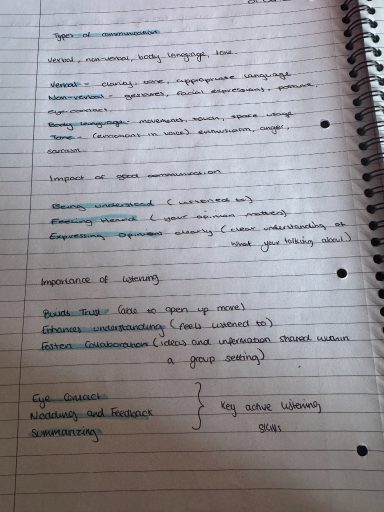 Types of communication
Verbal, non-verbal, body language, tone
Verbal - clarity, tone, appropriate language
Non-verbal - gestures, facial expressions, posture,
eye contact.
Body language - movements, touch, space usage
Tone - (excitement in voice) enthusiasm, anger,
sarcasm
Impact of good communication
Being understood (listened to)
Feeling Heard (your opinion matters)
Expressing Opinions clearly (clear understanding of
what your talking about)
Importance of listening
Builds Trust (able to open up more)
Enhances understanding (feels listened to)
Fosters Collaboration (ideas and information shared within
a group setting)
Eye Contact
Nodding and Feedback } Key active listening
Summarizing skills